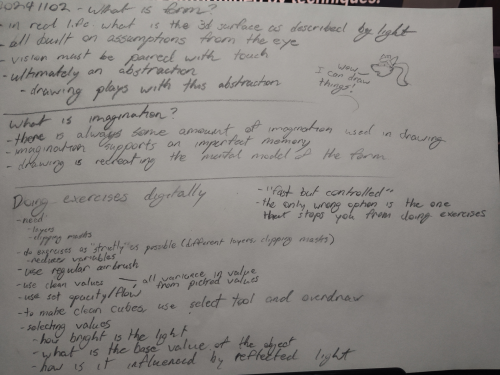 TECHNIQUES:
20241102 - What is form?
- in real life what is the 3d surface as described by light
- all built on assumptions from the eye
- vision must be paired with touch
- ultimately an abstraction
- drawing plays with this abstraction
wow, I can draw things!
What is imagination?
- there is always some amount of imagination used in drawing
- imagination supports an imperfect memory
- drawing is recreating the mental model of the form
Doing exercises digitally
- need
- layers
- clipping masks
- do exercises as "strictly" as possible (different layers, clipping masks)
- reduces variables
- use regular airbrush
- use clean values → all variance in value from picked values
- use set opacity/flow
- to make clean cubes, use select tool and overdraw
- selecting values
- how bright is the light
- what is the base value of the object
- how is it influenced by reflected light
- "fast but controlled"
- the only wrong option is the one that stops you from doing exercises